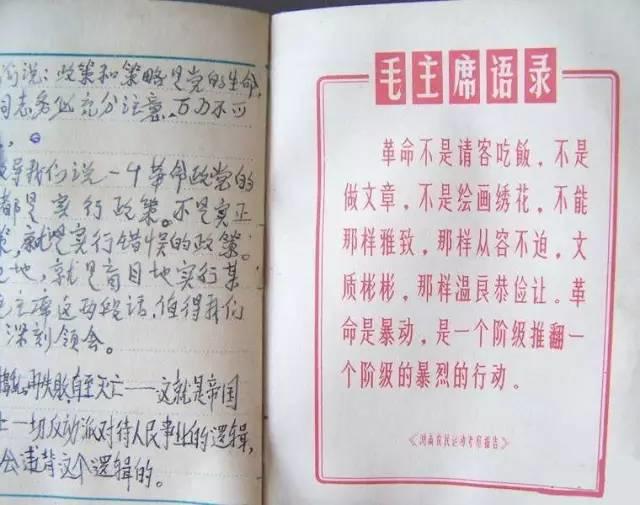 说：政策和策略是党的生命，
同志务必充分注意，万万不可
，。
导我们说一个革命政党的
都是实行政策。不是实正
策，就是实行错误的政策；
地，就是盲目地实行某
主席这两段话，值得我们
深刻领会。
捣乱，再失败，直至灭亡——这就是帝国
一切反动派对待人民事业的逻辑，
会违背这个逻辑的。
毛主席语录
革命不是请客吃飯，不是
做文章，不是绘画绣花，不能
那样雅致，那样从容不迫，文
质彬彬，那样温良恭俭让。革
命是暴动，是一个阶级推翻一
个阶级的暴烈的行动。
《湖南农民运动考察报告》